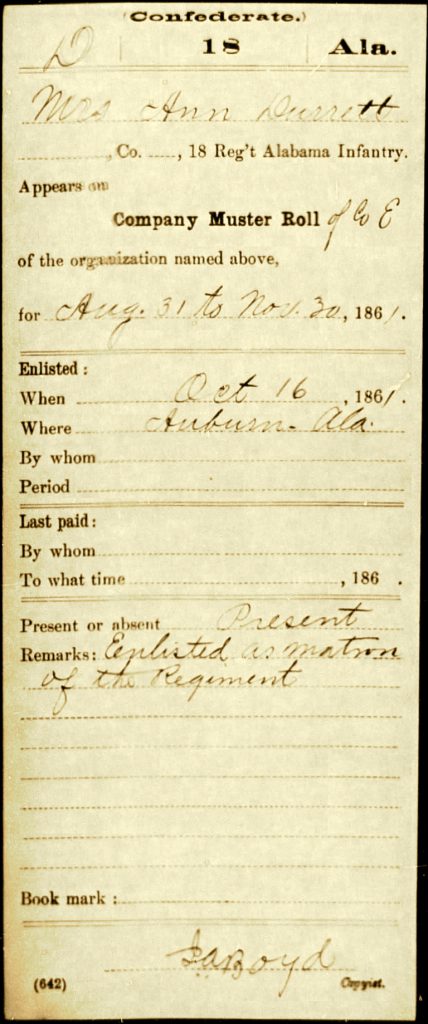 (Confederate.)
D | 18 | Ala.
Mrs Ann Durrett
, Co. , 18 Reg't Alabama Infantry.
Appears on
Company Muster Roll of Co E
of the organization named above,
for Aug. 31 to Nov. 30, 1861.
Enlisted:
When Oct 16, 1861.
Where Auburn- Ala.
By whom
Period
Last paid:
By whom
To what time , 186 .
Present or absent Present
Remarks: Eenlisted as matron
of the Regiment
Book mark:
Boyd
(642) Copyist.